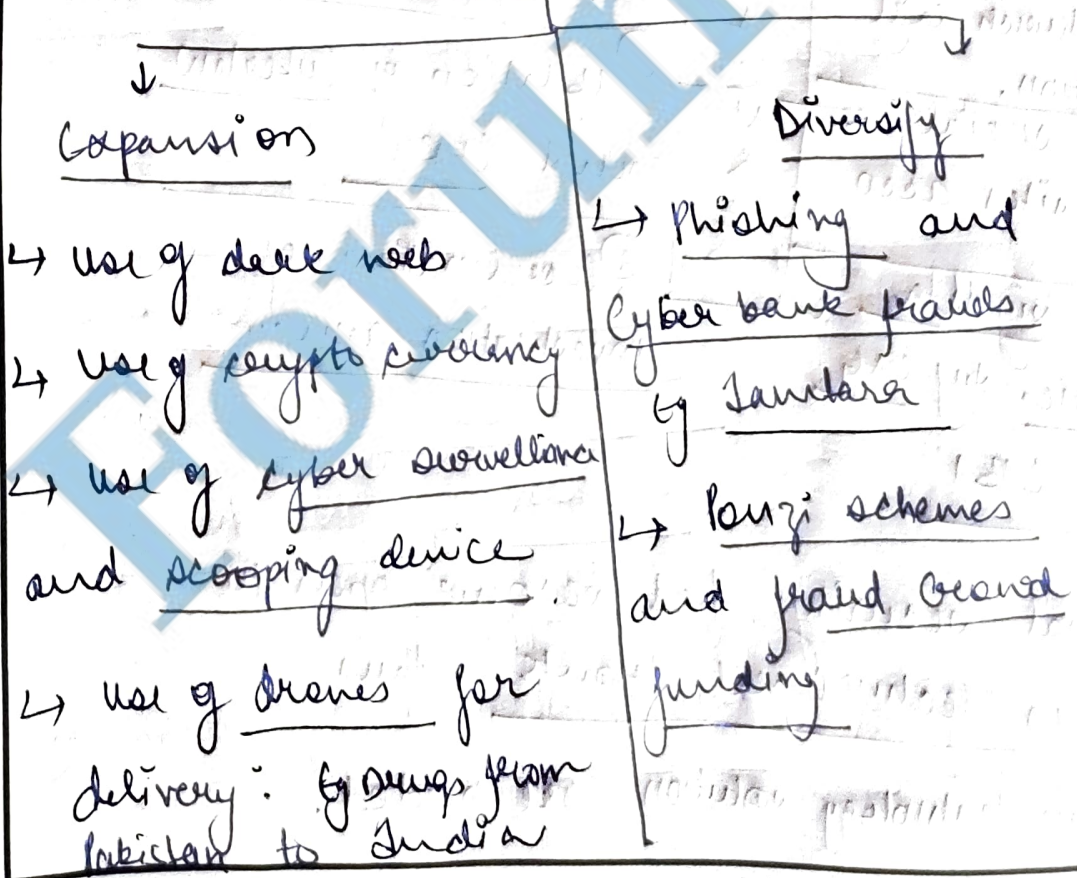 Expansion
↳ Use of dark web
↳ Use of crypto currency
↳ Use of cyber survelliance
and scooping device
↳ Use of drones for
delivery: Eg Drugs from
Pakistan to India
Diversify
↳ Phishing and
Cyber bank frauds
Eg Jamtara
↳ Ponzi schemes
and fraud crowd
funding
Forum